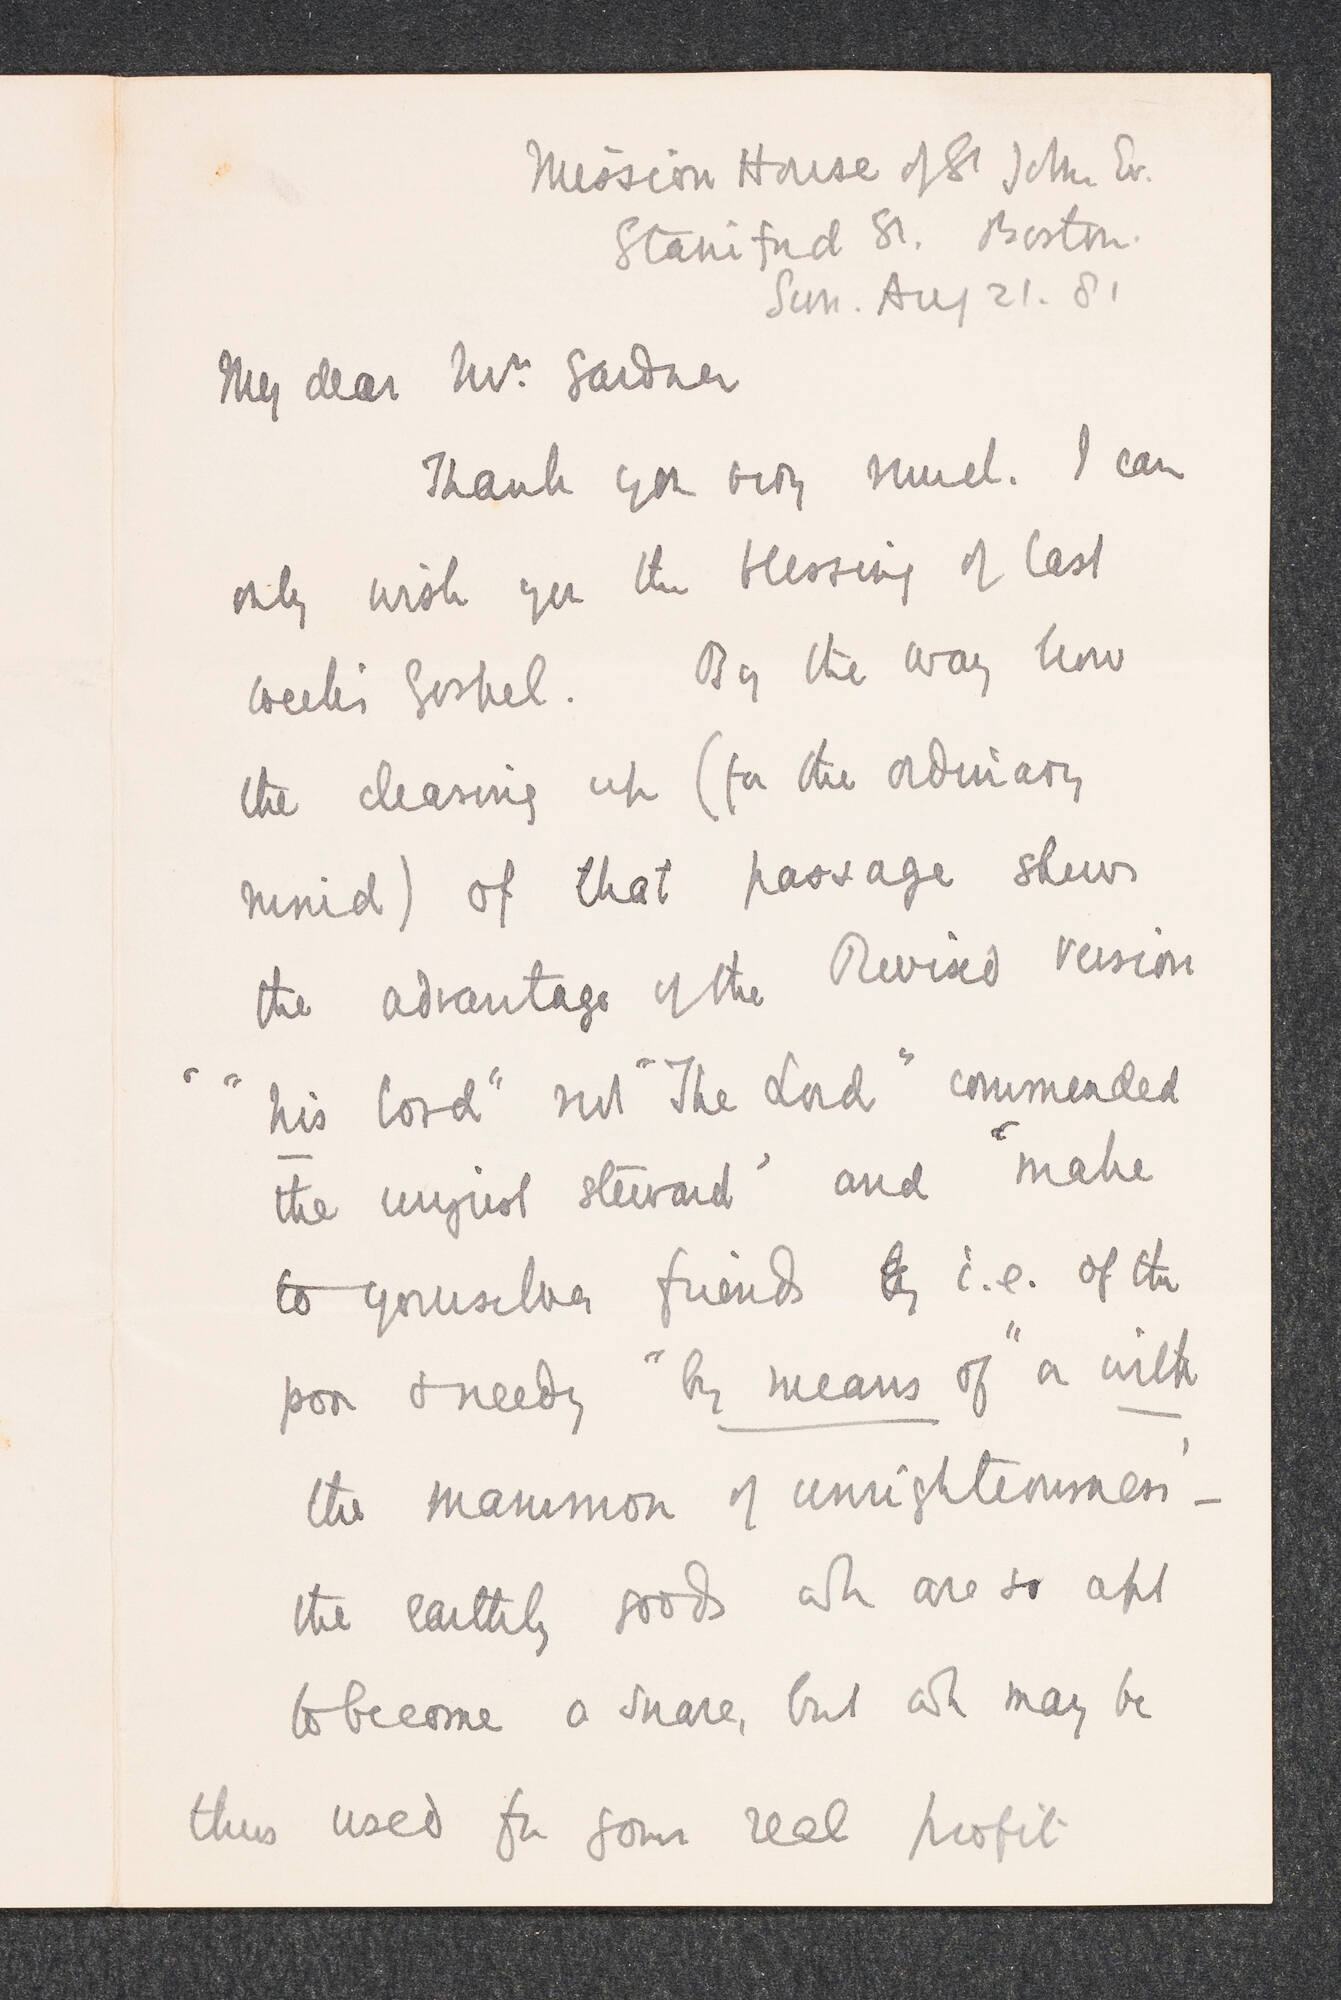 Mission House of St John Ev.
Staniford St. Boston.
Sun. Aug 21. 81
My dear Mrs. Gardner
Thank you very much. I can
only wish you the blessing of last
week's Gospel. By the way how
the clearing up (for the ordinary
mind) of that passage shews
the advantage of the Revised Version
" "his lord" not "The Lord" commended
the unjust steward' and "make
to yourselves friends by i.e. of the
poor & needy "by means of" or with
the mammon of unrighteousness' –
the earthly goods wh are so apt
to become a snare, but wh may be
thus used for your real profit